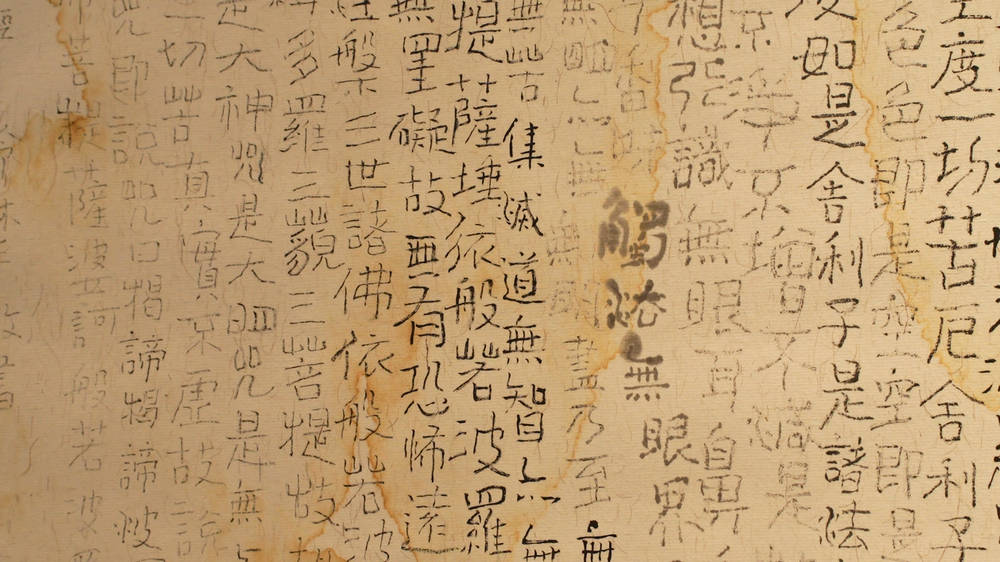 度一切苦厄舍利子
色色即是空空即是
如是舍利子是諸法
淨不增不減是
想行識無眼耳鼻
觸法無眼界
無明亦無無明盡乃至無
無苦集滅道無智亦無
提薩埵依般若波羅
無罣礙故無有恐怖遠
槃三世諸佛依般若波
耨多羅三藐三菩提故
是大神咒是大明咒是無
一切苦真實不虛故說
咒即說咒曰揭諦揭諦波
諦菩提薩婆訶般若波